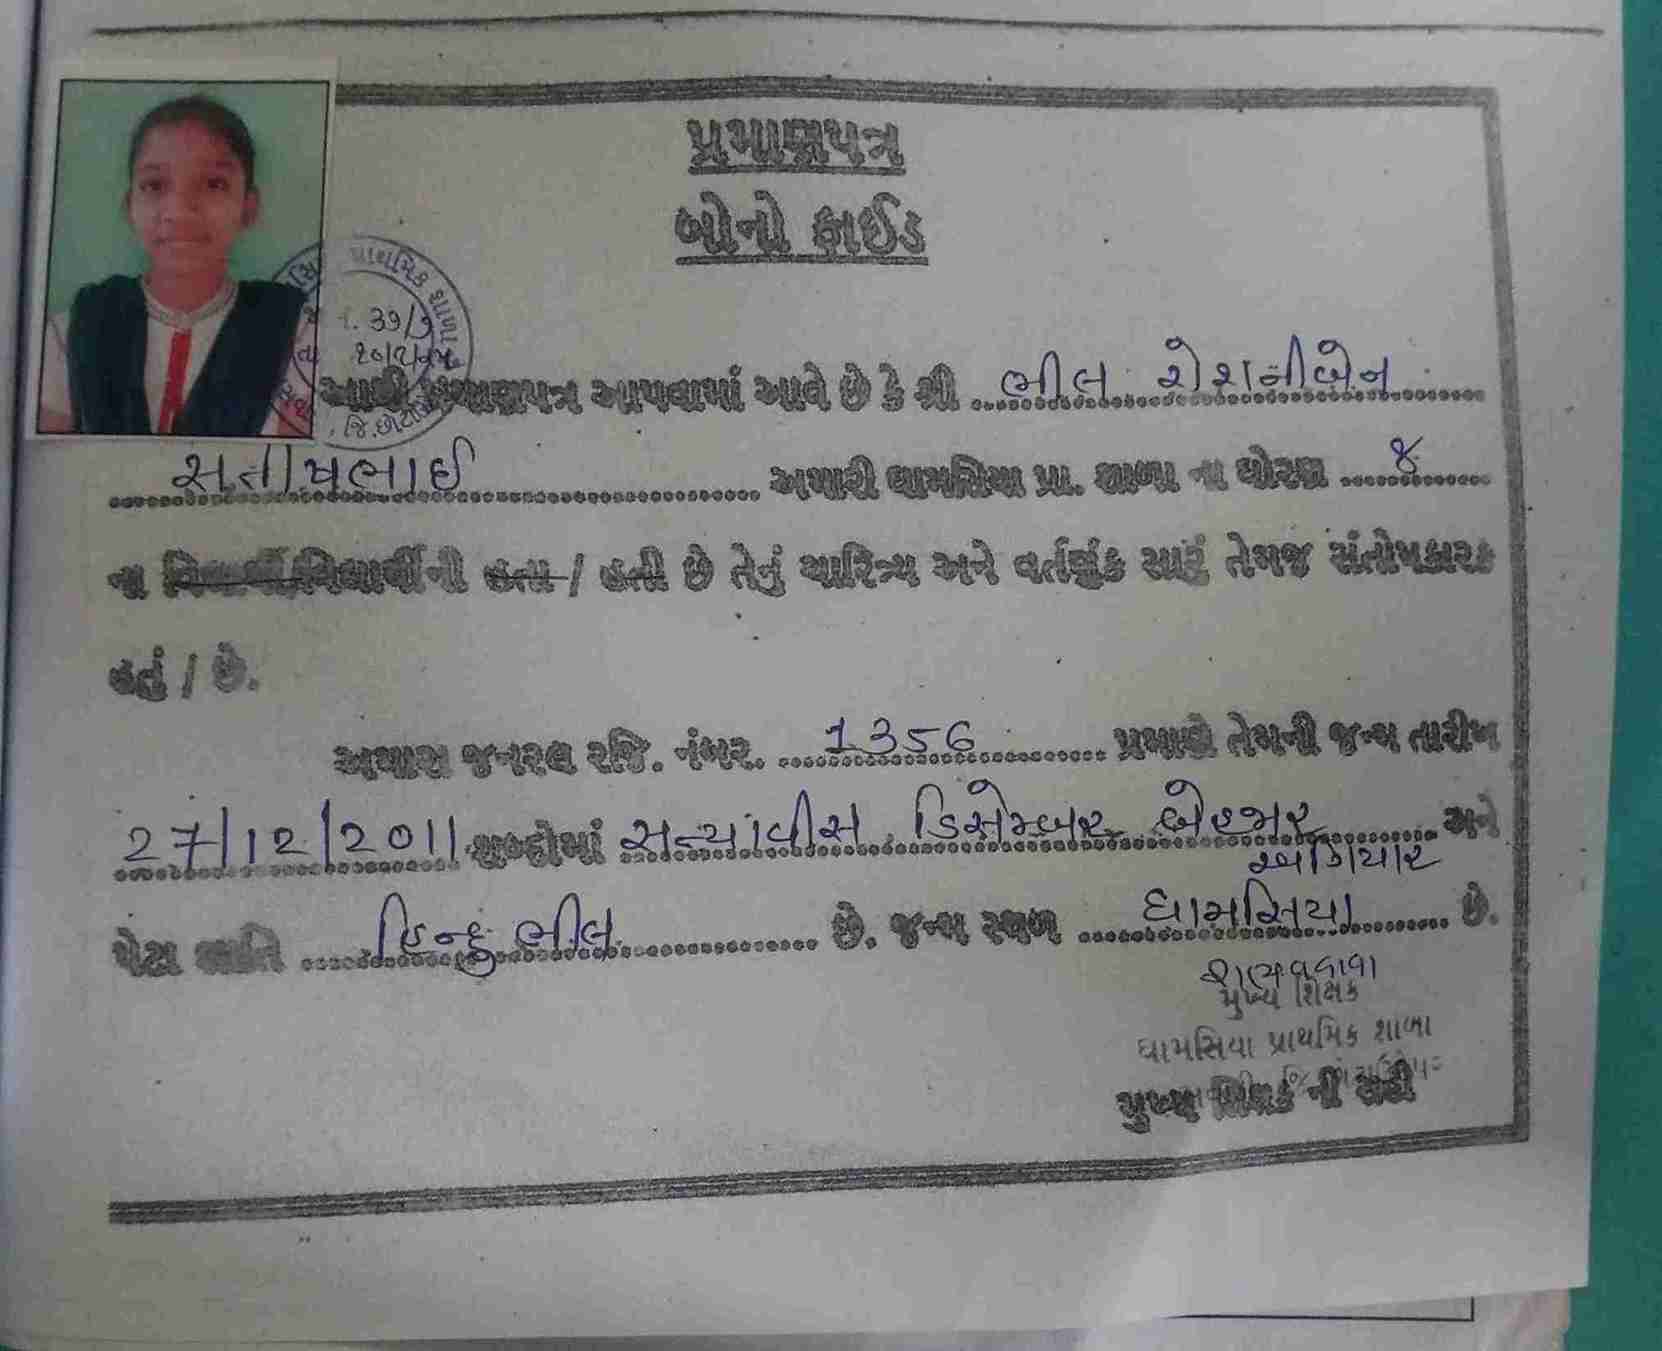 પ્રમાણપત્ર
બોનો ફાઈડ
પ્રાથમિક શાળા
આથી પ્રમાણપત્ર આપવામાં આવે છે કે શ્રી ભીલ રોશનીબેન
સતીષભાઈ અમારી ઘામસિયા પ્રા. શાળા ના ધોરણ
ના વિદ્યાર્થી/વિદ્યાર્થીની હતા / હતી છે તેનું ચારિત્ર્ય અને વર્તણુંક સારું તેમજ સંતોષકારક
હતું / છે.
અમારા જનરલ રજિ. નંબર. 1356 પ્રમાણે તેમની જન્મ તારીખ
27/12/2011 શબ્દોમાં સત્યાવીસ ડિસેમ્બર બેહજાર અને
અગિયાર
પેટા જાતિ હિન્દુ ભીલ છે. જન્મ સ્થળ ઘામસિયા છે.
મુખ્ય શિક્ષક
ઘામસિયા પ્રાથમિક શાળા
મુખ્ય શિક્ષક ની સહી